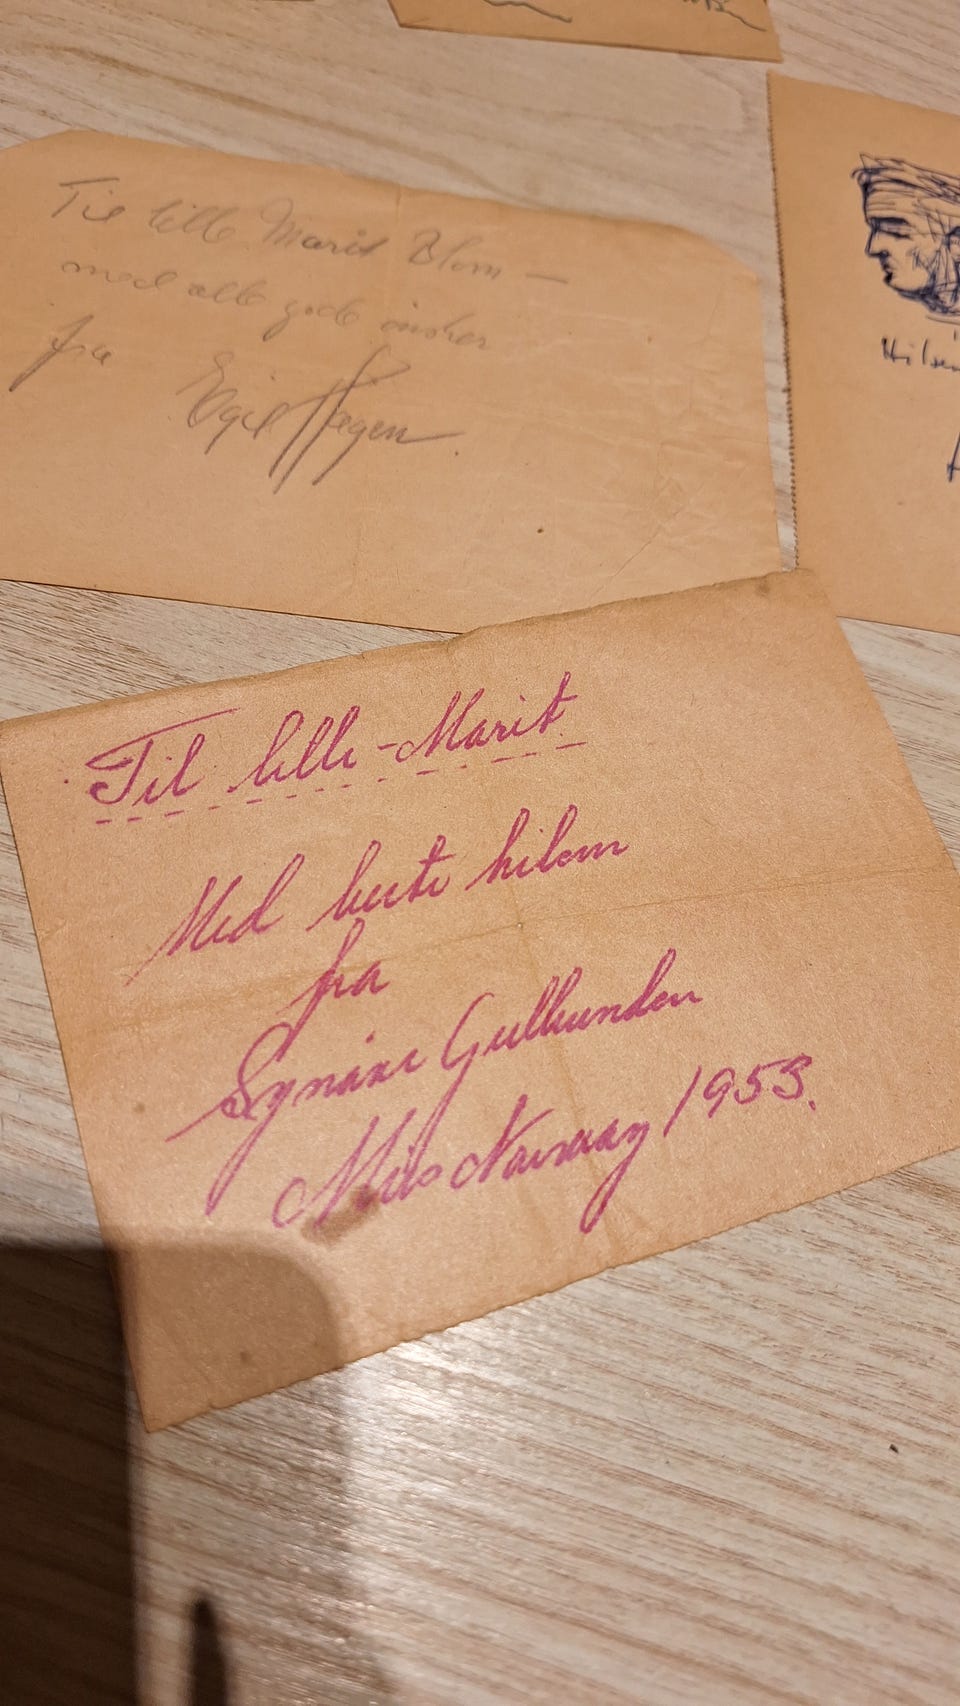 Til lille Marit Blom —
med alle gode ønsker
fra Egil Hagen
Hilsen
Til lille-Marit
Med beste hilsen
fra
Synøve Gulbranden
Miss Norway 1953.